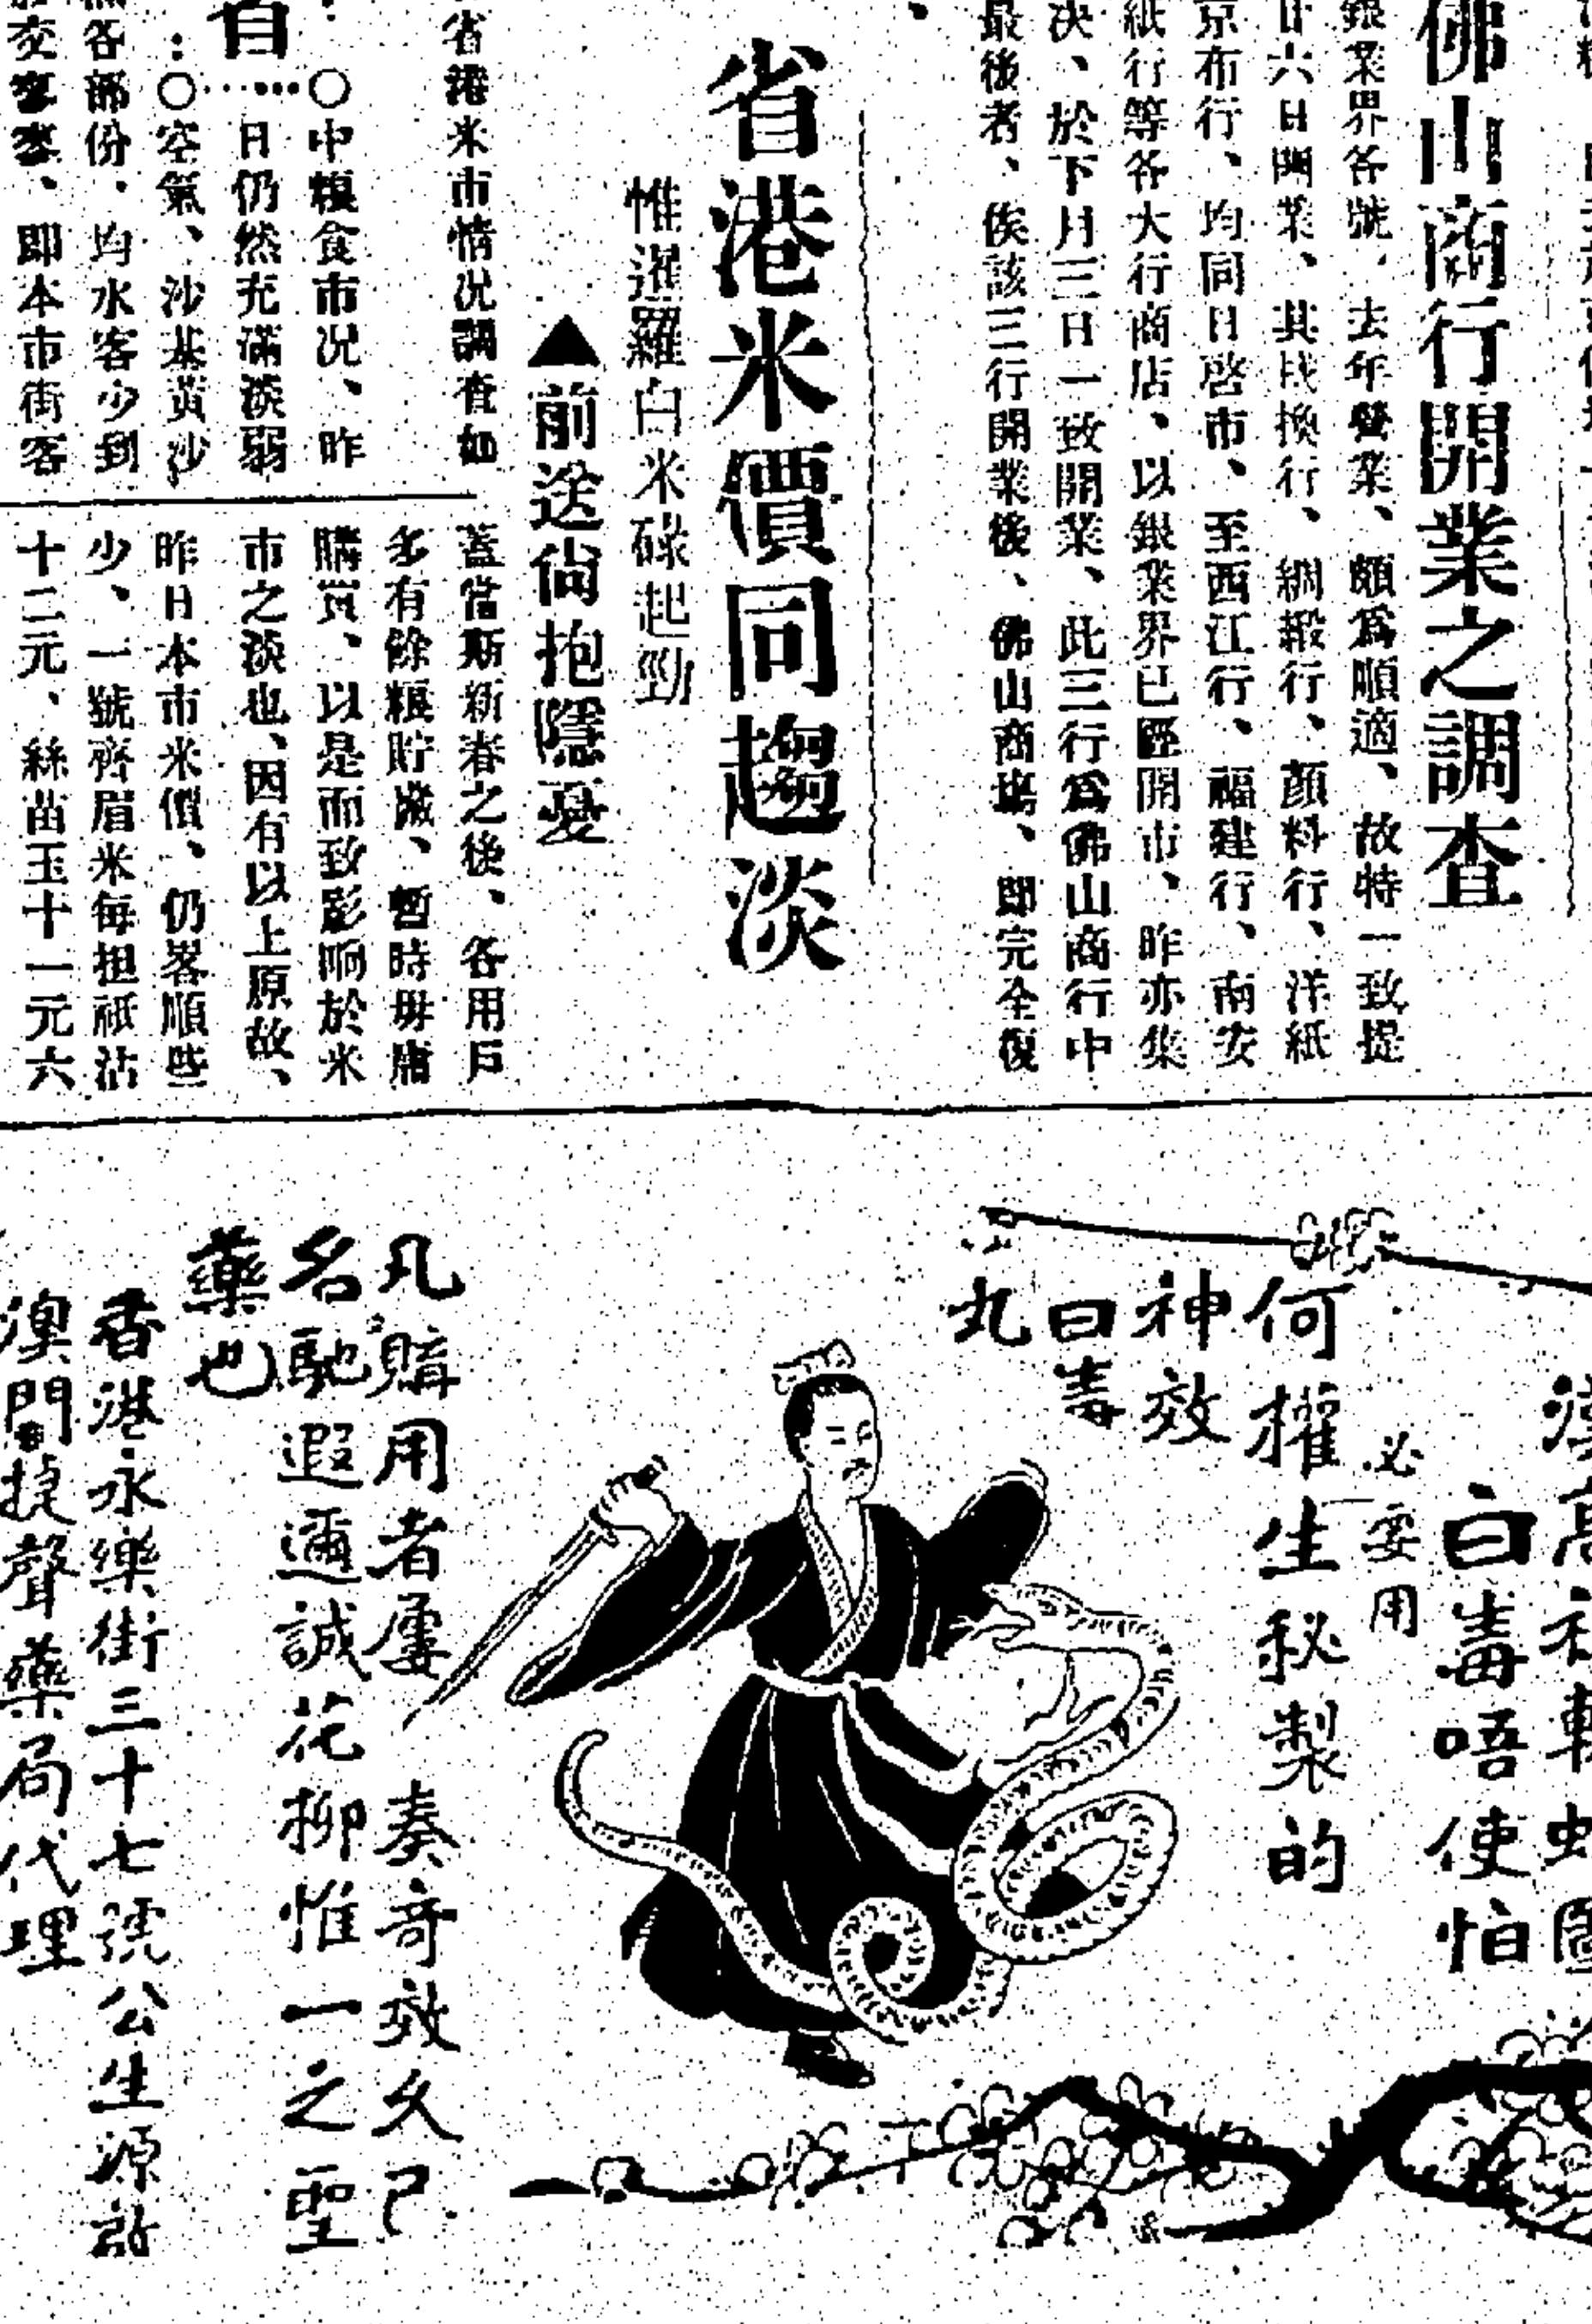 佛山商行開業之調查
銀業界各號、去年營業、頗爲順適、故特一致提
廿六日開業、其找換行、綢緞行、顏料行、洋紙
京布行、均同日啓市、至西江行、福建行、南安
紙行等各大行商店、以銀業界已經開市、昨亦集
决、於下月三日一致開業、此三行爲佛山商行中
最後者、俟該三行開業後、佛山商塲、即完全復
省港米價同趨淡
惟暹羅白米碌起勁
▲前送尙抱隱憂
省港米市情况調查如
○中糧食市况、昨
日仍然充滿淡弱
○空氣、沙基黃沙
各部份、均水客少到
交易寥寥、即本市街客
蓋當斯新春之後、各用戶
多有餘糧貯藏、暫時毋庸
購買、以是而致影响於米
市之淡也、因有以上原故、
昨日本市米價、仍畧順些
少、一號齊眉米每担祇沽
十二元、絲苗玉十一元六
漢高祖斬蛇圖
白毒唔使怕
必要用
何權生秘製的
神效
白毒
丸
凡購用者屢奏奇效久已
名馳遐邇誠花柳惟一之聖
藥也
香港永樂街三十七號公生源啟
澳門捷聲藥局代理